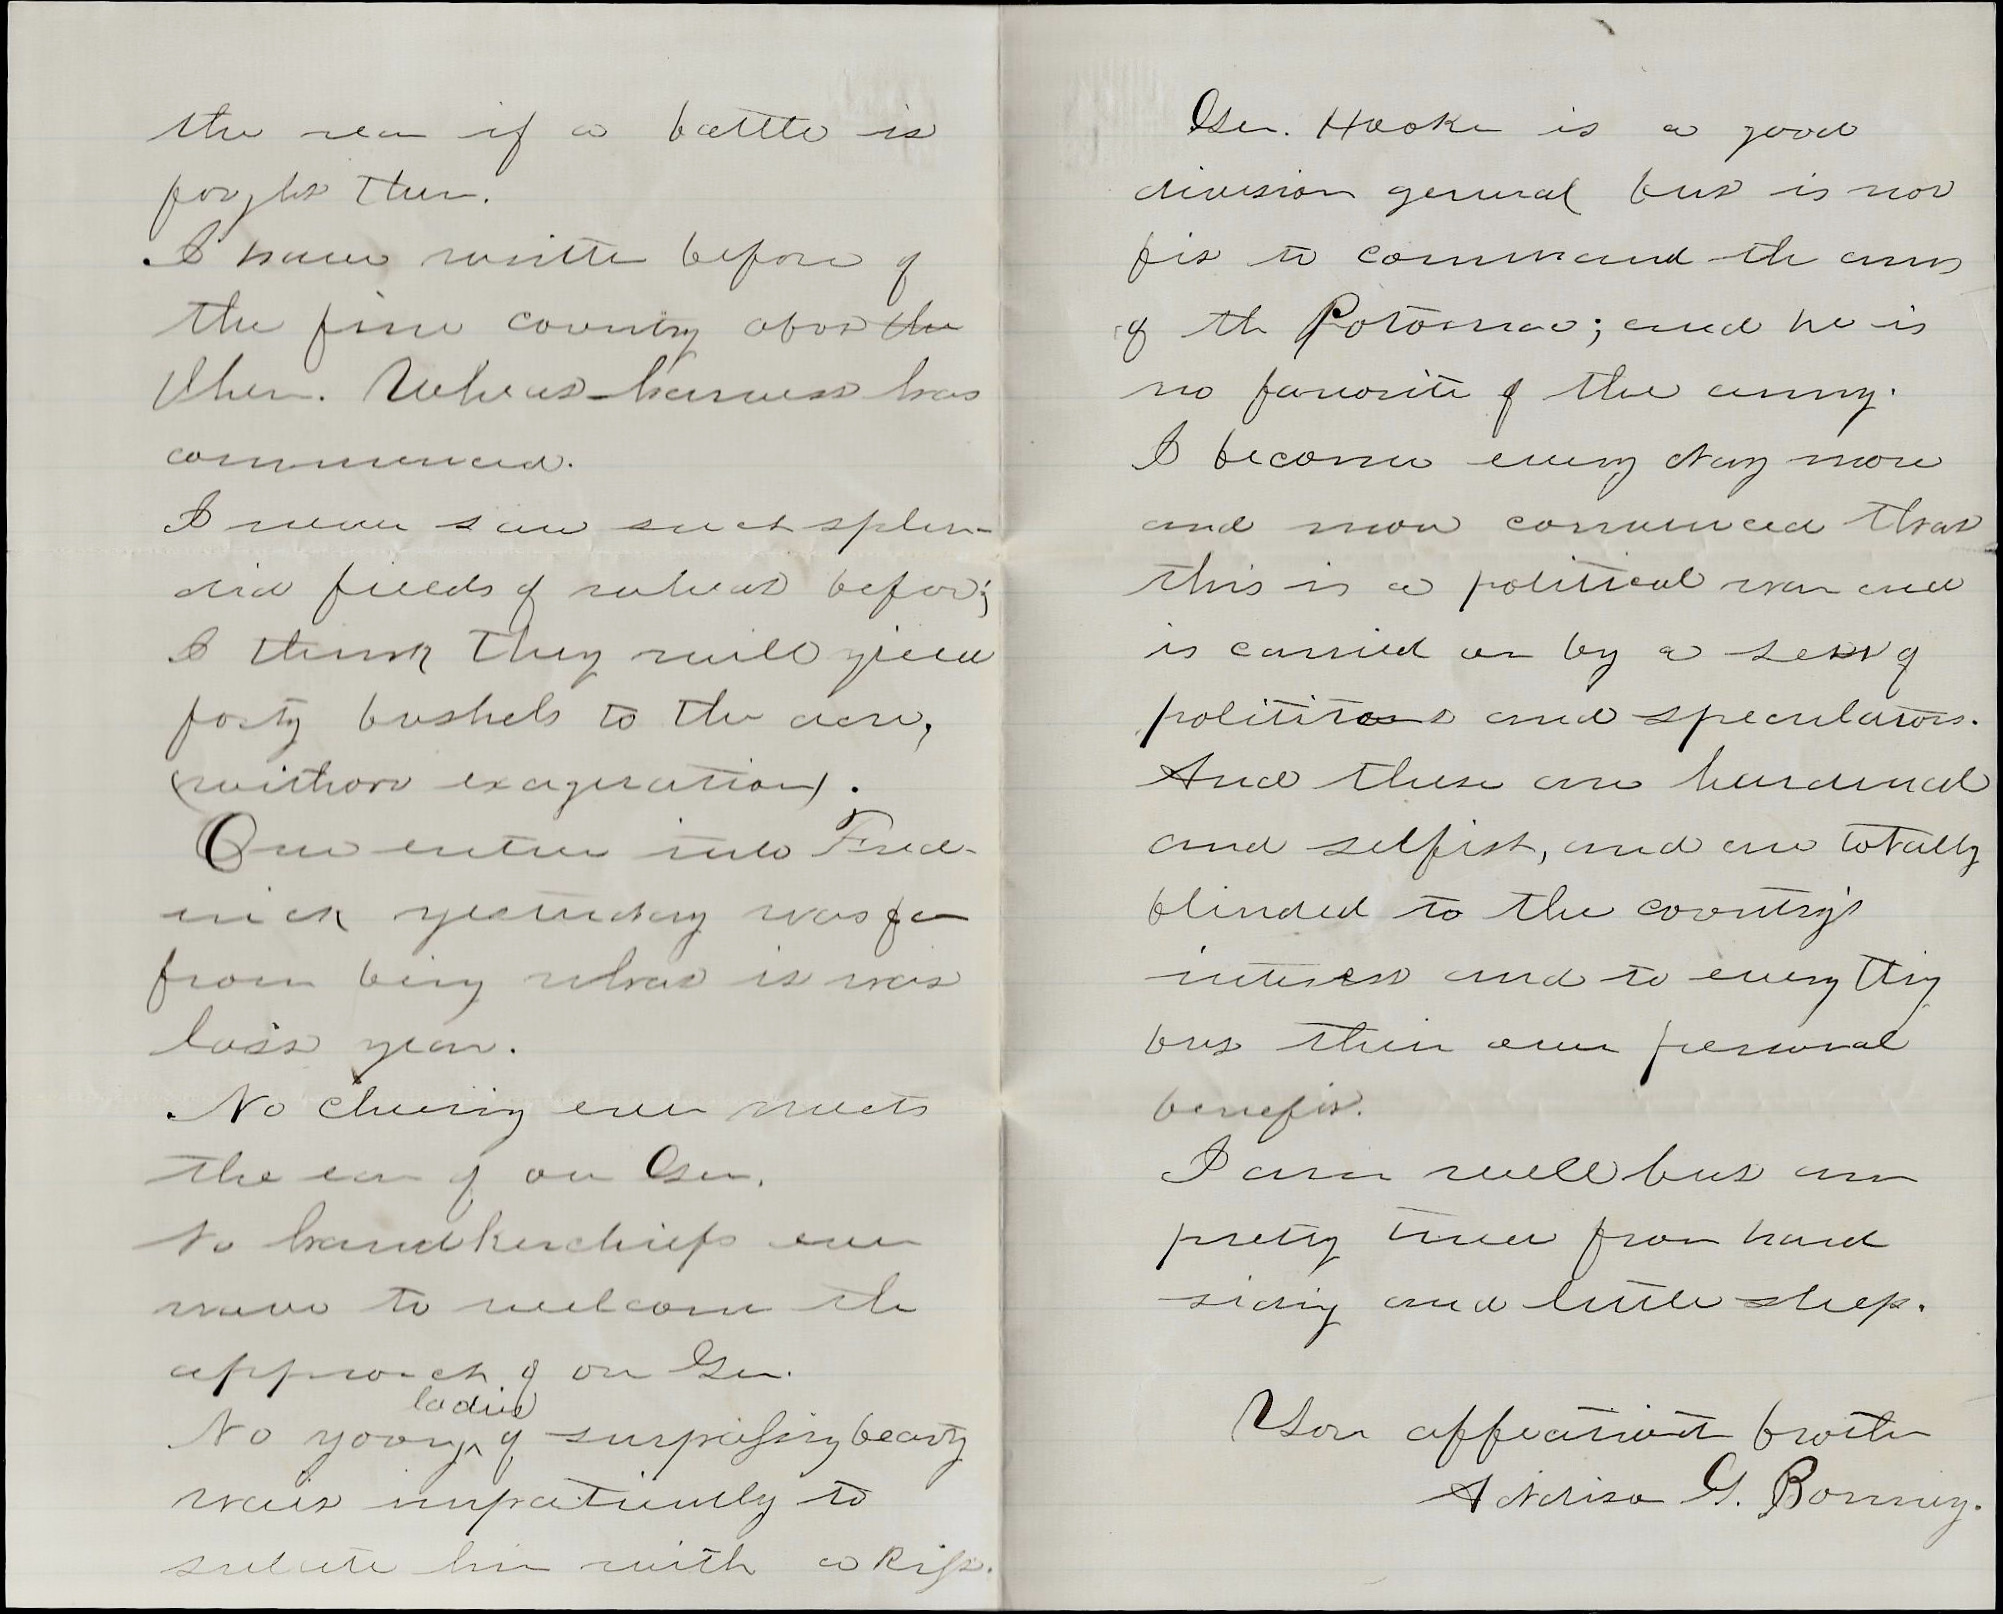 the rear if a battle is
fought there.
I have written before of
the fine country about the
there. Wheat-harvest has
commenced.
I never saw such splen-
did fields of wheat before;
I think they will yield
forty bushels to the acre,
(without exageration).
Our entree into Fred-
erick yesterday was far
from being what is was
last year.
No cheering ever meets
the ear of our Gen.
No handkerchiefs ever
wave to welcome the
approach of our Gen.
No young ladies of surpassing beauty
wait impatiently to
salute him with a kiss.
Gen. Hooker is a good
division general but is not
fit to command the army
of the Potomac; and he is
no favorite of the army.
I become every day more
and more convinced that
this is a political war and
is carried on by a set of
and speculators.
And these are hardened
and selfish, and are totally
blinded to the country's
interest and to every thing
but their own personal
benefit.
I am well but am
pretty tired from hard
riding and little sleep.
Your affectionate brother
Addison G. Bonney.